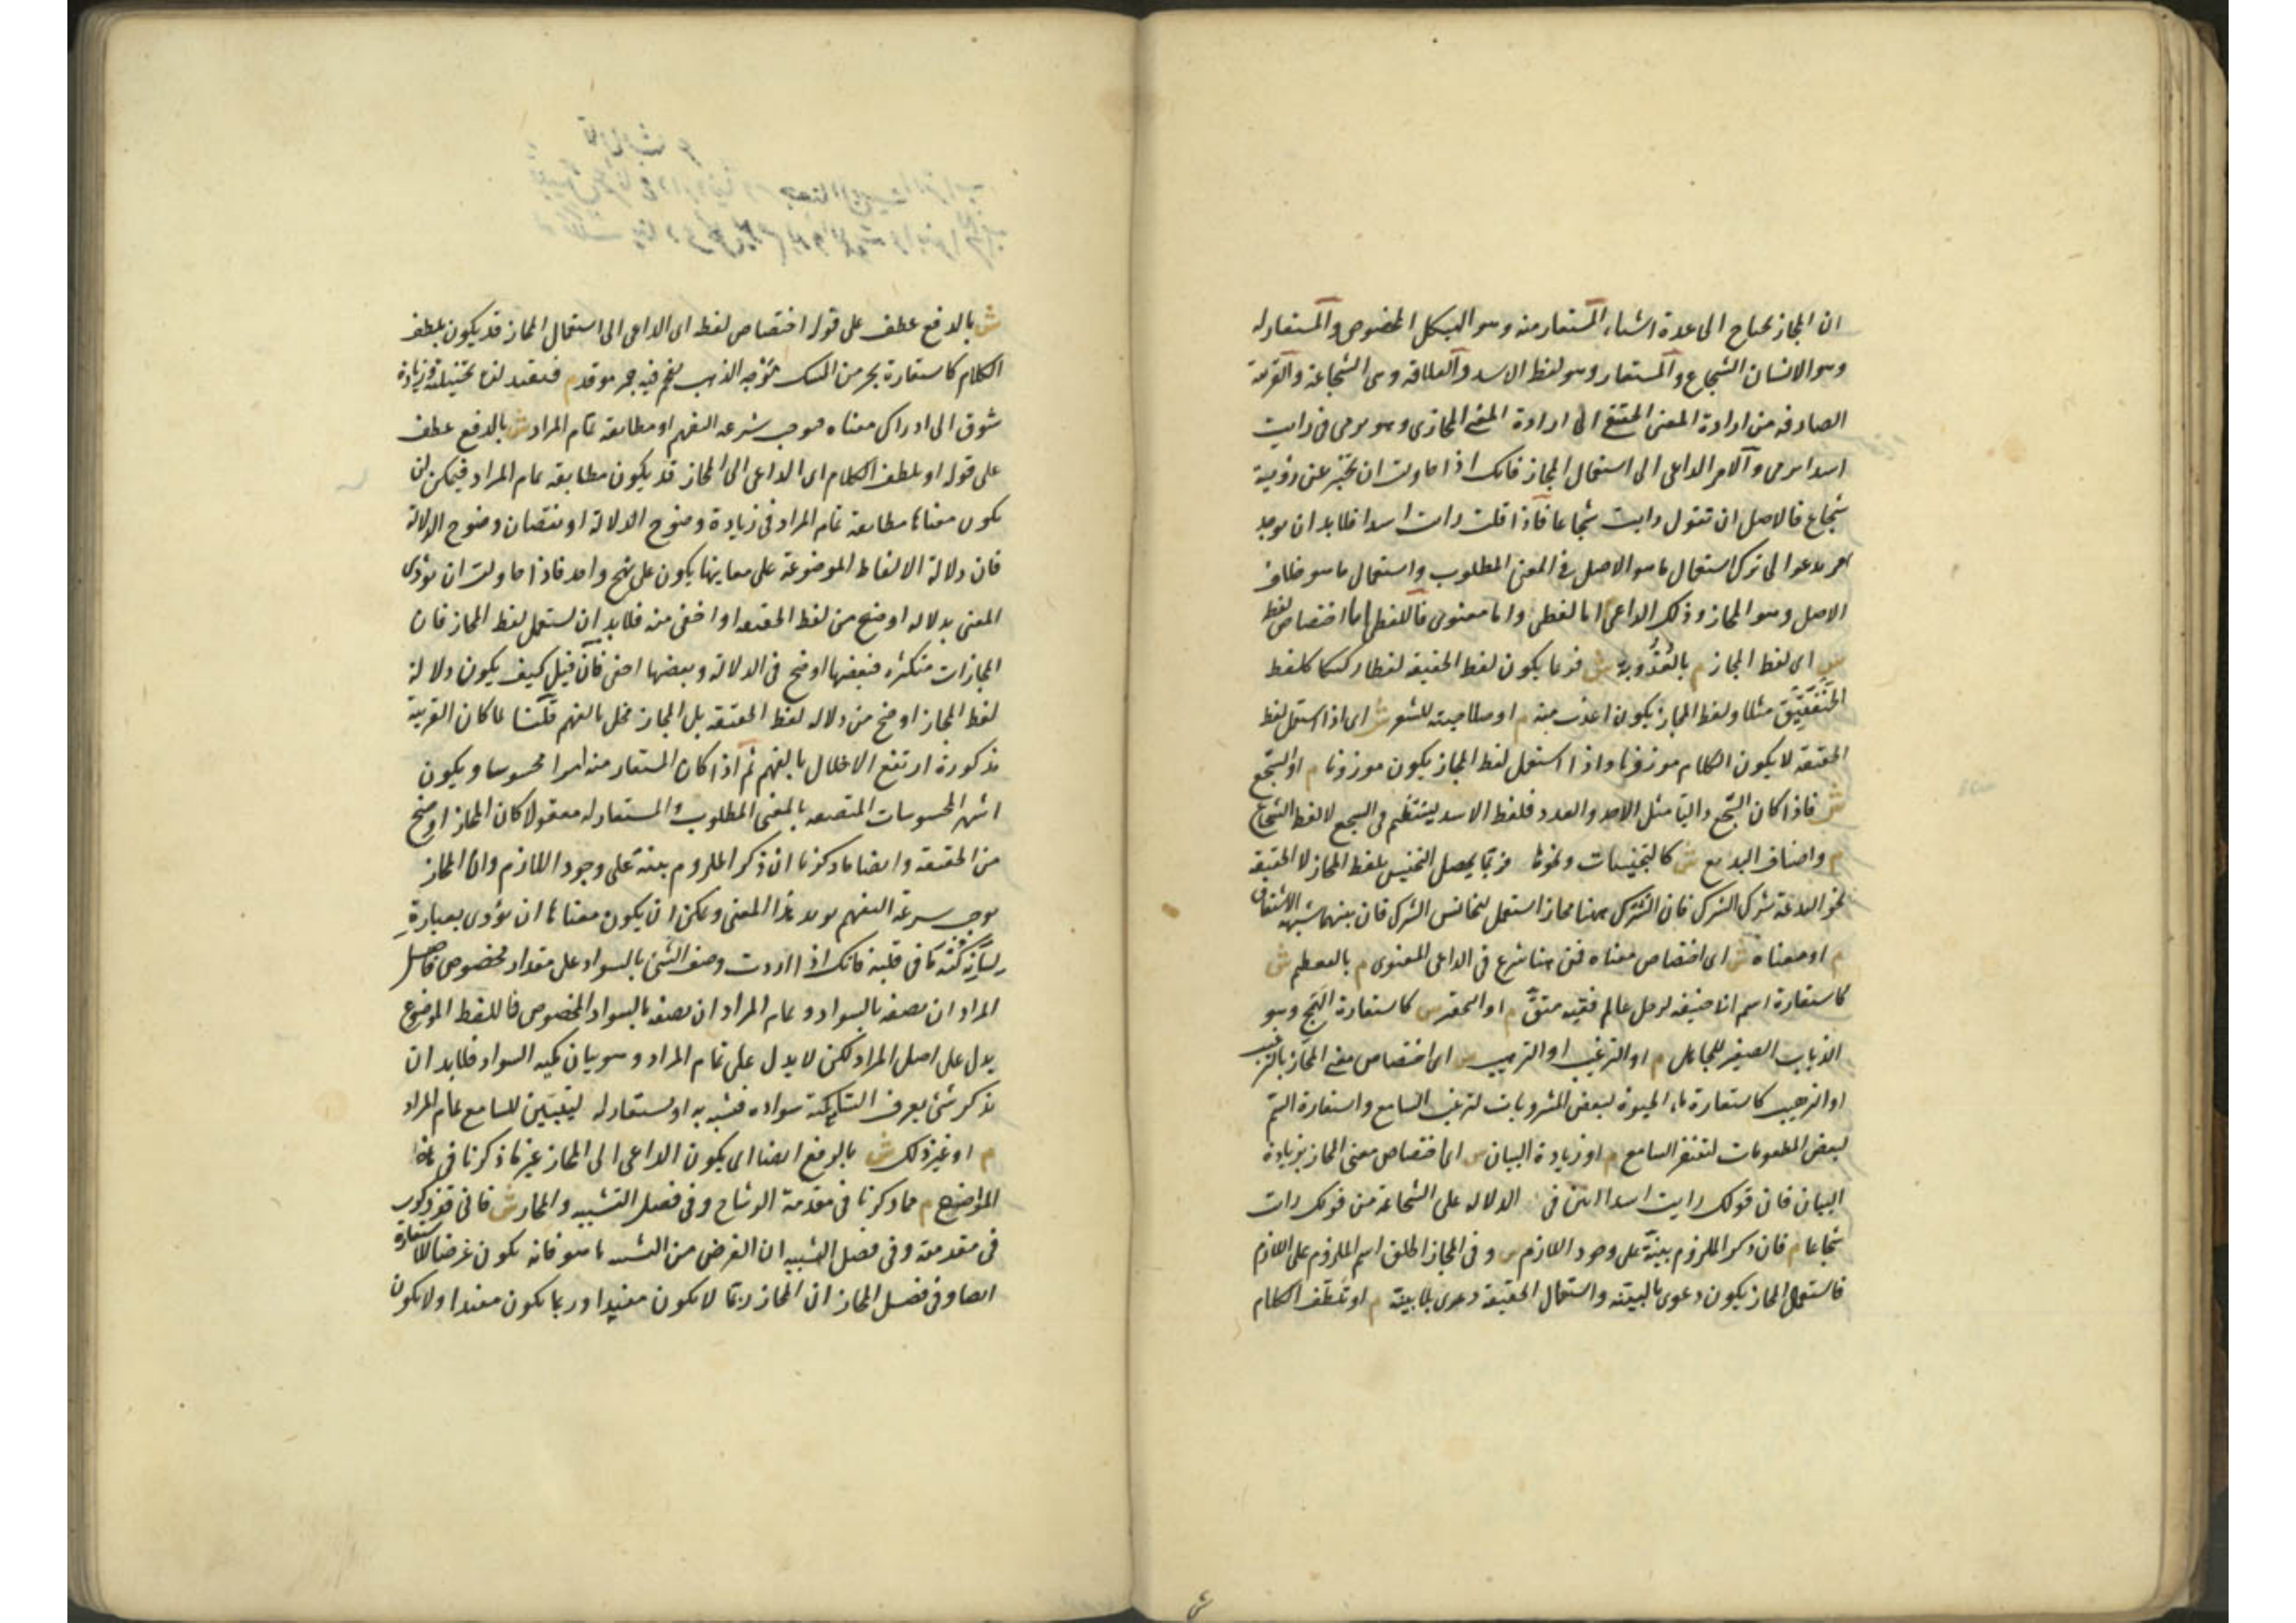 ان المجاز يحتاج الى عدة اشياء المستعار منه وهو الهيكل المخصوص والمستعار له
وهو الانسان الشجاع والمستعار وهو لفظ الاسد والعلاقة وهى الشجاعة والقرينة
الصارفة من ارادة المعنى الحقيقى الى ارادة المعنى المجازى وهو يرمى فى رايت
اسدا يرمى والامر الداعى الى استعمال المجاز فانك اذا حاولت ان تخبر عن رؤية
شجاع فالاصل ان تقول رايت شجاعا فاذا قلت رايت اسدا فلا بد ان يوجد
امر يدعو الى ترك استعمال ما هو الاصل فى المعنى المطلوب واستعمال ما هو خلاف
الاصل وهو المجاز وذلك الداعى اما لفظى واما معنوى فاللفظى اما اختصاص لفظه
ش اى لفظ المجاز م بالعذوبة ش فربما يكون لفظ الحقيقة لفظا ركيكا كلفظ
الخنفقيق مثلا ولفظ المجاز يكون اعذب منه م او صلاحيته للشعر ش اى اذا استعمل لفظ
الحقيقة لا يكون الكلام موزونا واذا استعمل لفظ المجاز يكون موزونا م او السجع
ش فاذا كان السجع داليا مثل الاحد والعدد فلفظ الاسد ينتظم فى السجع لا لفظ الشجاع
م واصناف البديع ش كالتجنيسات ونحوها فربما يحصل التجنيس بلفظ المجاز لا الحقيقة
نحو البدعة شرك الشرك فان الشرك هنا مجاز استعمل ليجانس الشرك فان بينهما شبه الاشتقاق
م او معناه ش اى اختصاص معناه فمن هنا شرع فى الداعى المعنوى م بالتعظيم ش
كاستعارة اسم ابى حنيفة لرجل عالم فقيه متق م او التحقير ش كاستعارة الهمج وهو
الذباب الصغير للجاهل م او الترغيب او الترهيب ش اى اختصاص معنى المجاز بالترغيب
او الترهيب كاستعارة ماء الحيوة لبعض المشروبات لترغيب السامع واستعارة السم
لبعض المطعومات لتنفر السامع م او زيادة البيان ش اى اختصاص معنى المجاز بزيادة
البيان فان قولك رايت اسدا ابين فى الدلالة على الشجاعة من قولك رايت
شجاعا م فان ذكر الملزوم بينة على وجود اللازم ش وفى المجاز اطلق اسم الملزوم على اللازم
فاستعمال المجاز يكون دعوى بالبينة واستعمال الحقيقة دعوى بلا بينة م او تلطف الكلام
ش بالرفع عطف على قوله اختصاص لفظه اى الداعى الى استعمال المجاز قد يكون تلطف
الكلام كاستعارة بحر من المسك موجه الذهب لفحم فيه جمر موقد م فيفيد لذة تخييلية وزيادة
شوق الى ادراك معناه فيوجب سرعة التفهم او مطابقة تمام المراد ش بالرفع عطف
على قوله او تلطف الكلام اى الداعى الى المجاز قد يكون مطابقة تمام المراد فيمكن ان
يكون معناها مطابقة تمام المراد فى زيادة وضوح الدلالة او نقصان وضوح الدلالة
فان دلالة الالفاظ الموضوعة على معانيها يكون على نهج واحد فاذا حاولت ان تؤدى
المعنى بدلالة اوضح من لفظ الحقيقة او اخفى منه فلا بد ان يستعمل لفظ المجاز فان
المجازات متكثرة فبعضها اوضح فى الدلالة وبعضها اخفى فان قيل كيف يكون دلالة
لفظ المجاز اوضح من دلالة لفظ الحقيقة بل المجاز مخل بالفهم قلنا لما كان القرينة
مذكورة ارتفع الاخلال بالفهم ثم اذا كان المستعار منه امرا محسوسا ويكون
اشهر المحسوسات المتصفة بالمعنى المطلوب والمستعار له معقولا كان المجاز اوضح
من الحقيقة وايضا ما ذكرنا ان ذكر الملزوم بينة على وجود اللازم وان المجاز
يوجب سرعة التفهم يؤيد هذا المعنى ويمكن ان يكون معناها ان يؤدى بعبارة
لسانه كنه ما فى قلبه فانك اذا اردت وصف الشئ بالسواد على مقدار مخصوص فاصل
المراد ان تصفه بالسواد وتمام المراد ان تصفه بالسواد المخصوص فاللفظ الموضوع
يدل على اصل المراد لكن لا يدل على تمام المراد وهو بيان كمية السواد فلا بد ان
يذكر شئ يعرف السامع كمية سواده فيشبه به او يستعار له ليتبين للسامع تمام المراد
م او غير ذلك ش بالرفع ايضا اى يكون الداعى الى المجاز غير ما ذكرنا فى هذه
المواضع م مما ذكرنا فى مقدمة الوشاح وفى فصل التشبيه والمجاز ش فانى قد ذكرت
فى مقدمته وفى فصل التشبيه ان الغرض من التشبيه ما هو فانه يكون غرضا للاستعارة
ايضا وفى فصل المجاز ان المجاز ربما لا يكون مفيدا وربما يكون مفيدا ولا يكون